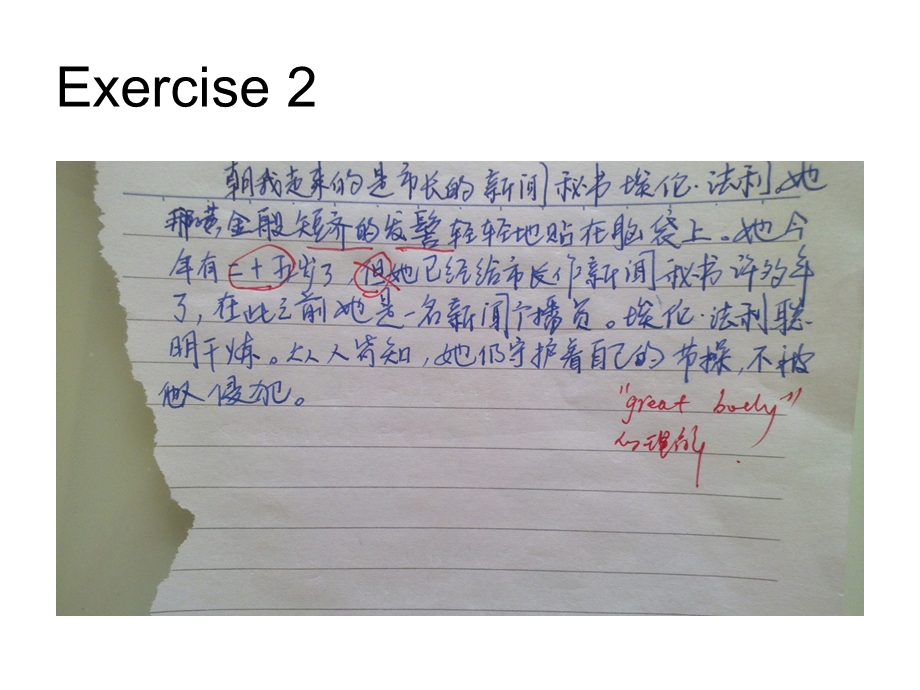 Exercise 2
朝我走来的是市长的新闻秘书埃伦·法利。她
那黄金般短齐的发髻轻轻地贴在脑袋上。她今
年有二十五岁了,但她已经给市长作新闻秘书许多年
了,在此之前她是一名新闻广播员。埃伦·法利聪
明干炼。众人皆知,她仍守护着自己的节操,不被
他人侵犯。
"great body"
心理的.